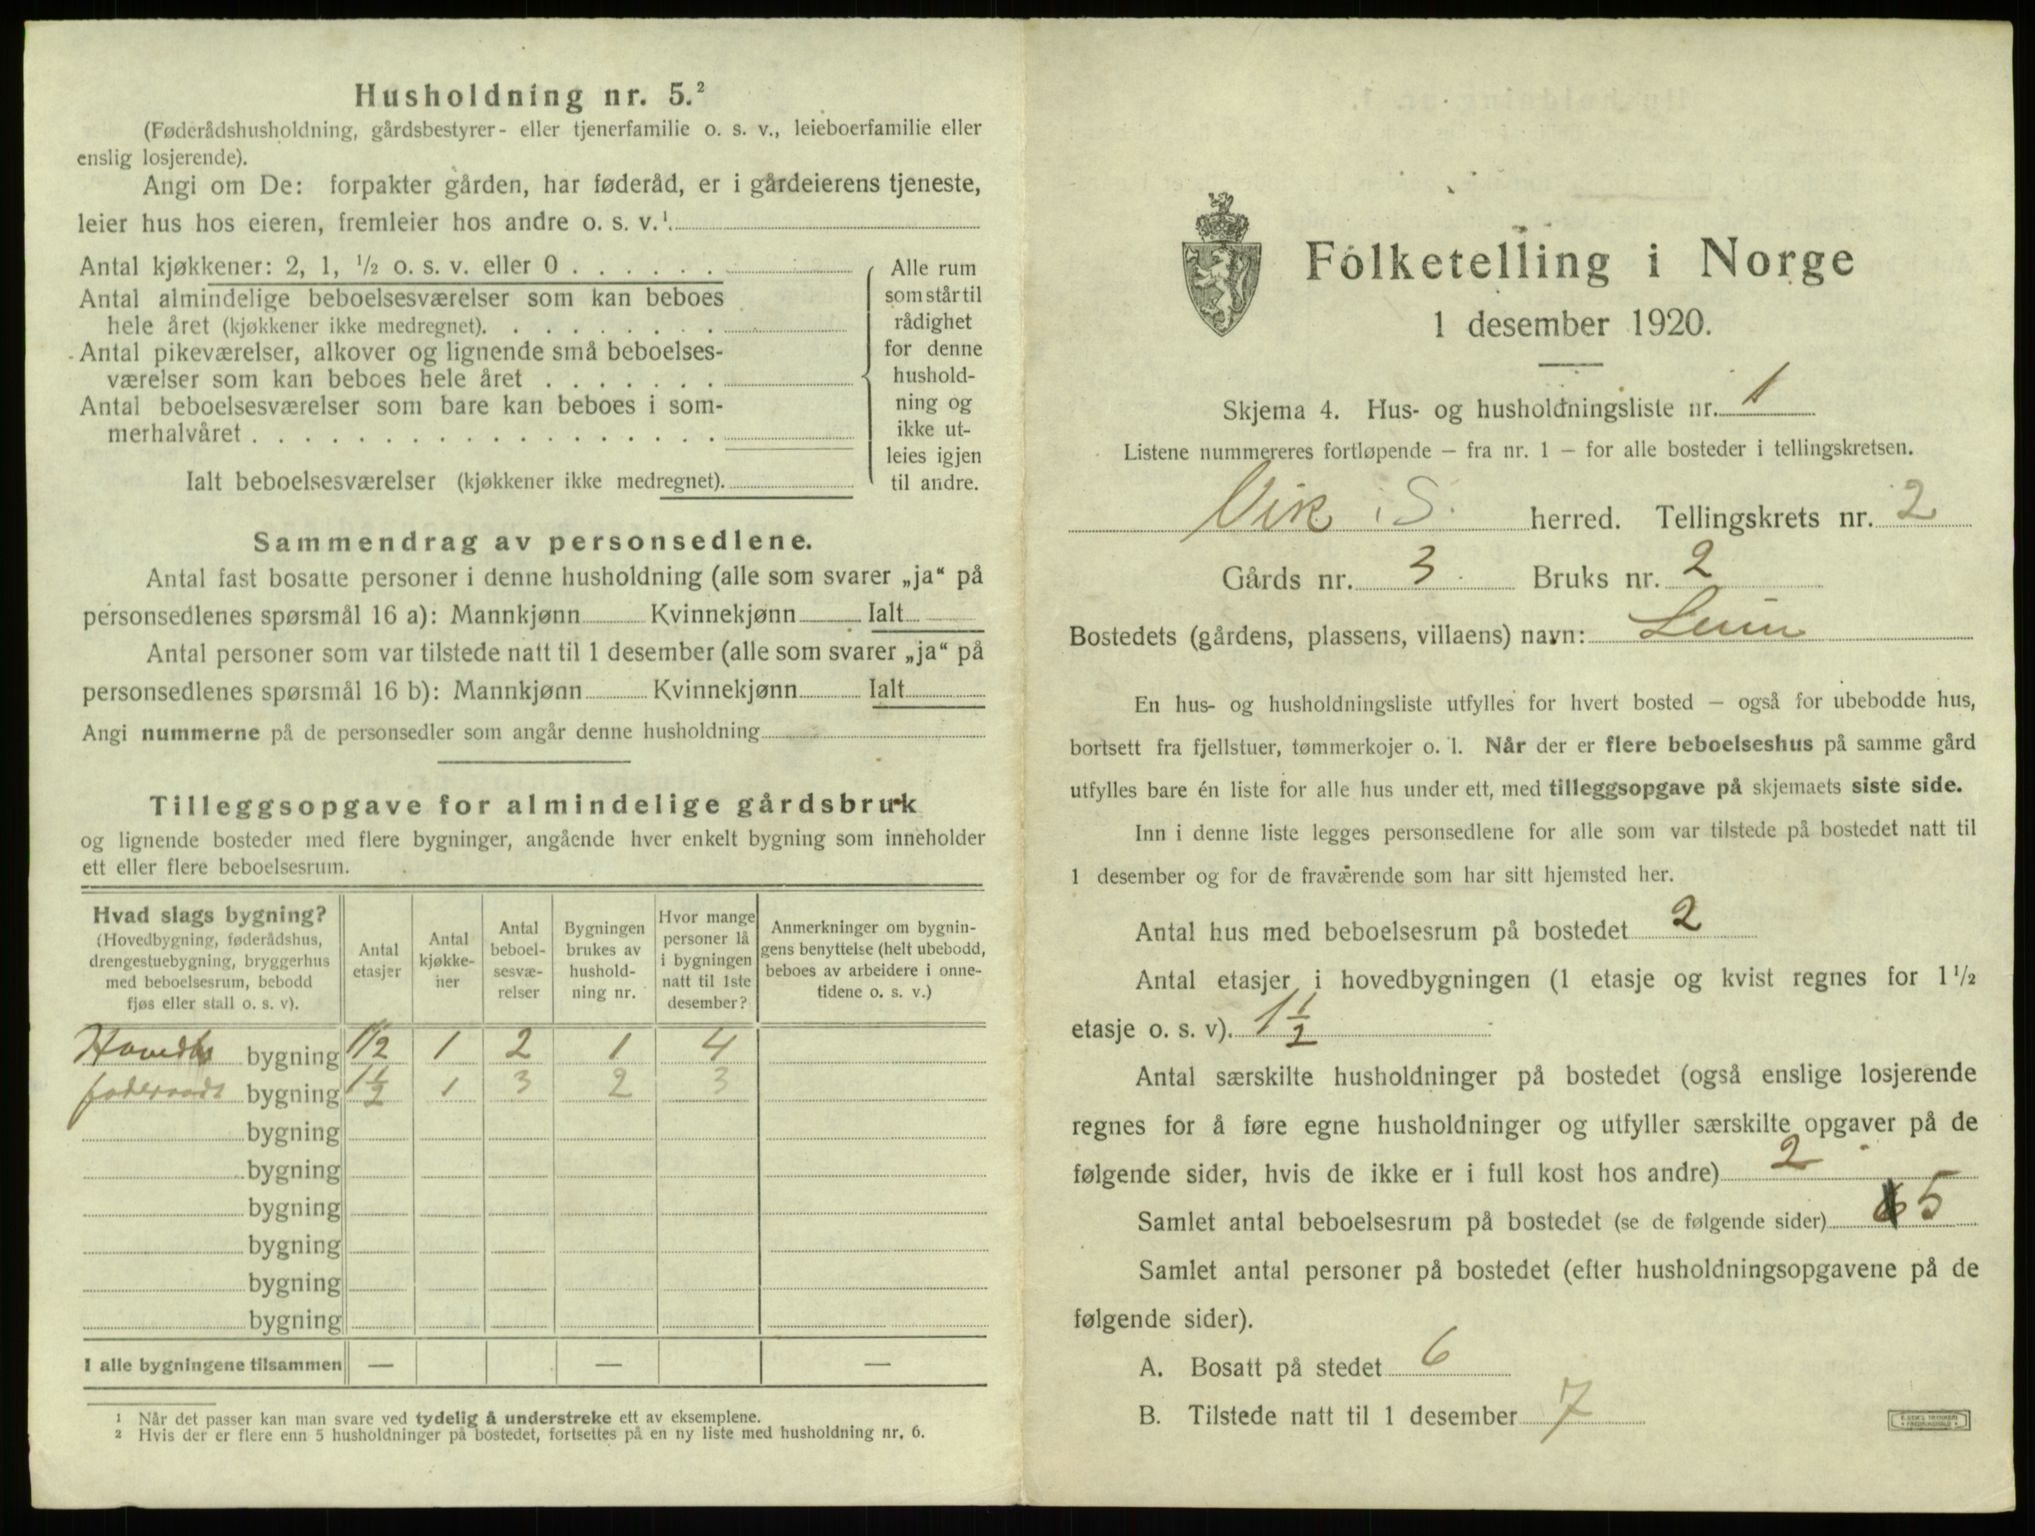 Husholdning nr. 5.²
(Føderådshusholdning, gårdsbestyrer- eller tjenerfamilie o. s. v., leieboerfamilie eller
enslig losjerende).
Angi om De: forpakter gården, har føderåd, er i gårdeierens tjeneste,
leier hus hos eieren, fremleier hos andre o. s. v.¹
Antal kjøkkener: 2, 1, ½ o. s. v. eller 0
Antal almindelige beboelsesværelser som kan beboes
hele året (kjøkkener ikke medregnet).
Antal pikeværelser, alkover og lignende små beboelses-
værelser som kan beboes hele året
Antal beboelsesværelser som bare kan beboes i som-
merhalvåret
Ialt beboelsesværelser (kjøkkener ikke medregnet).
Alle rum
som står til
rådighet
for denne
hushold-
ning og
ikke ut-
leies igjen
til andre.
Sammendrag av personsedlene.
Antal fast bosatte personer i denne husholdning (alle som svarer „ja“ på
personsedlenes spørsmål 16 a): Mannkjønn Kvinnekjønn Ialt
Antal personer som var tilstede natt til 1 desember (alle som svarer „ja“ på
personsedlenes spørsmål 16 b): Mannkjønn Kvinnekjønn Ialt
Angi nummerne på de personsedler som angår denne husholdning
Tilleggsopgave for almindelige gårdsbruk
og lignende bosteder med flere bygninger, angående hver enkelt bygning som inneholder
ett eller flere beboelsesrum.
Hvad slags bygning?
(Hovedbygning, føderådshus,
drengestuebygning, bryggerhus
med beboelsesrum, bebodd
fjøs eller stall o. s. v).
Antal
etasjer
Antal
kjøkke-
ner
Antal
beboel-
sesvæ-
relser
Bygningen
brukes av
hushold-
ning nr.
Hvor mange
personer lå
i bygningen
natt til 1ste
desember?
Anmerkninger om bygnin-
gens benyttelse (helt ubebodd,
beboes av arbeidere i onne-
tidene o. s. v.)
bygning 1½ 1 2 1 4
føderaads bygning 1½ 1 3 2 3
bygning
bygning
bygning
bygning
bygning
bygning
I alle bygningene tilsammen — — —
¹ Når det passer kan man svare ved tydelig å understreke ett av eksemplene.
² Hvis der er flere enn 5 husholdninger på bostedet, fortsettes på en ny liste med husholdning nr. 6.
Folketelling i Norge
1 desember 1920.
Skjema 4. Hus- og husholdningsliste nr. 1
Listene nummereres fortløpende – fra nr. 1 – for alle bosteder i tellingskretsen.
Vik i S. herred. Tellingskrets nr. 2
Gårds nr. 3 Bruks nr. 2
Bostedets (gårdens, plassens, villaens) navn:
En hus- og husholdningsliste utfylles for hvert bosted – også for ubebodde hus,
bortsett fra fjellstuer, tømmerkojer o. l. Når der er flere beboelseshus på samme gård
utfylles bare én liste for alle hus under ett, med tilleggsopgave på skjemaets siste side.
Inn i denne liste legges personsedlene for alle som var tilstede på bostedet natt til
1 desember og for de fraværende som har sitt hjemsted her.
Antal hus med beboelsesrum på bostedet 2
Antal etasjer i hovedbygningen (1 etasje og kvist regnes for 1 ½
etasje o. s. v). 1½
Antal særskilte husholdninger på bostedet (også enslige losjerende
regnes for å føre egne husholdninger og utfyller særskilte opgaver på de
følgende sider, hvis de ikke er i full kost hos andre) 2
Samlet antal beboelsesrum på bostedet (se de følgende sider) 5
Samlet antal personer på bostedet (efter husholdningsopgavene på de
følgende sider).
A. Bosatt på stedet 6
B. Tilstede natt til 1 desember 7